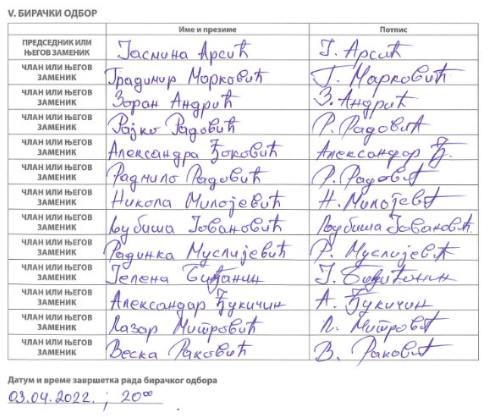 V. БИРАЧКИ ОДБОР
Име и презиме Потпис
ПРЕДСЕДНИК ИЛИ ЊЕГОВ ЗАМЕНИК Јасмина Арсић Ј. Арсић
ЧЛАН ИЛИ ЊЕГОВ ЗАМЕНИК Градимир Марковић Г. Марковић
ЧЛАН ИЛИ ЊЕГОВ ЗАМЕНИК Зоран Андрић З. Андрић
ЧЛАН ИЛИ ЊЕГОВ ЗАМЕНИК Рајко Радовић Р. Радовић
ЧЛАН ИЛИ ЊЕГОВ ЗАМЕНИК Александра Ђоковић Александар Ђ.
ЧЛАН ИЛИ ЊЕГОВ ЗАМЕНИК Радмило Радовић Р. Радовић
ЧЛАН ИЛИ ЊЕГОВ ЗАМЕНИК Никола Милојевић Н. Милојевић
ЧЛАН ИЛИ ЊЕГОВ ЗАМЕНИК Љубиша Јовановић Љубиша Јовановић
ЧЛАН ИЛИ ЊЕГОВ ЗАМЕНИК Радинка Муслијевић Р. Муслијевић
ЧЛАН ИЛИ ЊЕГОВ ЗАМЕНИК Јелена Ј.
ЧЛАН ИЛИ ЊЕГОВ ЗАМЕНИК Александар Ђукичин А. Ђукичин
ЧЛАН ИЛИ ЊЕГОВ ЗАМЕНИК Лазар Митровић Л. Митровић
ЧЛАН ИЛИ ЊЕГОВ ЗАМЕНИК Веска Раковић В. Раковић
Датум и време завршетка рада бирачког одбора
03.04.2022. ; 20⁰⁰